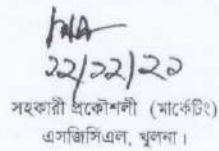 ২২/১২/২০
সহকারী প্রকৌশলী (মার্কেটিং)
এসজিসিএল, খুলনা।